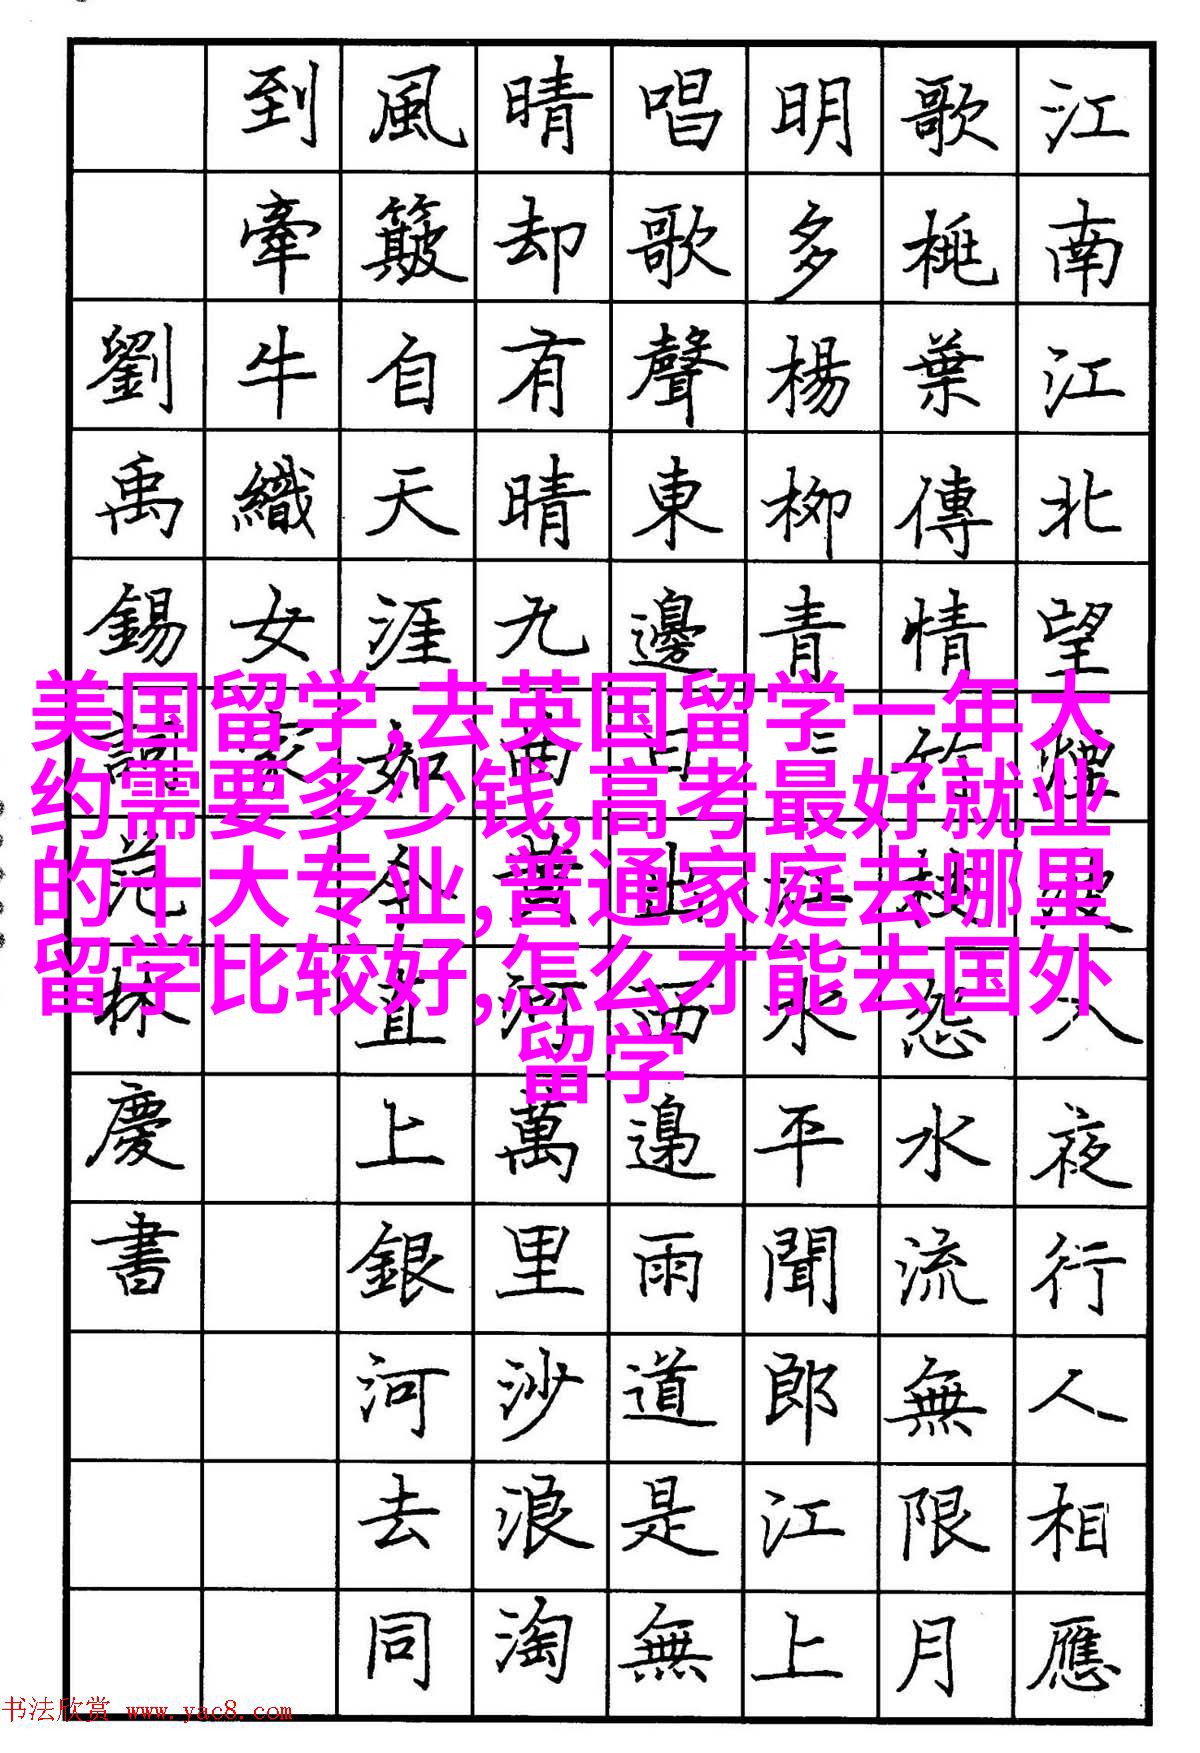 江南江北望煙波入夜行人相應
歌桃葉傳情竹枝怨水流無限月
明多楊柳青青江水平聞郎江上
唱歌聲東邊日出西邊雨道是無
晴却有晴九曲黃河萬里沙浪淘
風簸自天涯如今直上銀河去同
到牽牛織女家
劉禹錫詞范林慶書
美国留学,去英国留学一年大
约需要多少钱,高考最好就业
的十大专业,普通家庭去哪里
留学比较好,怎么才能去国外
留学
书法欣赏 www.yac8.com